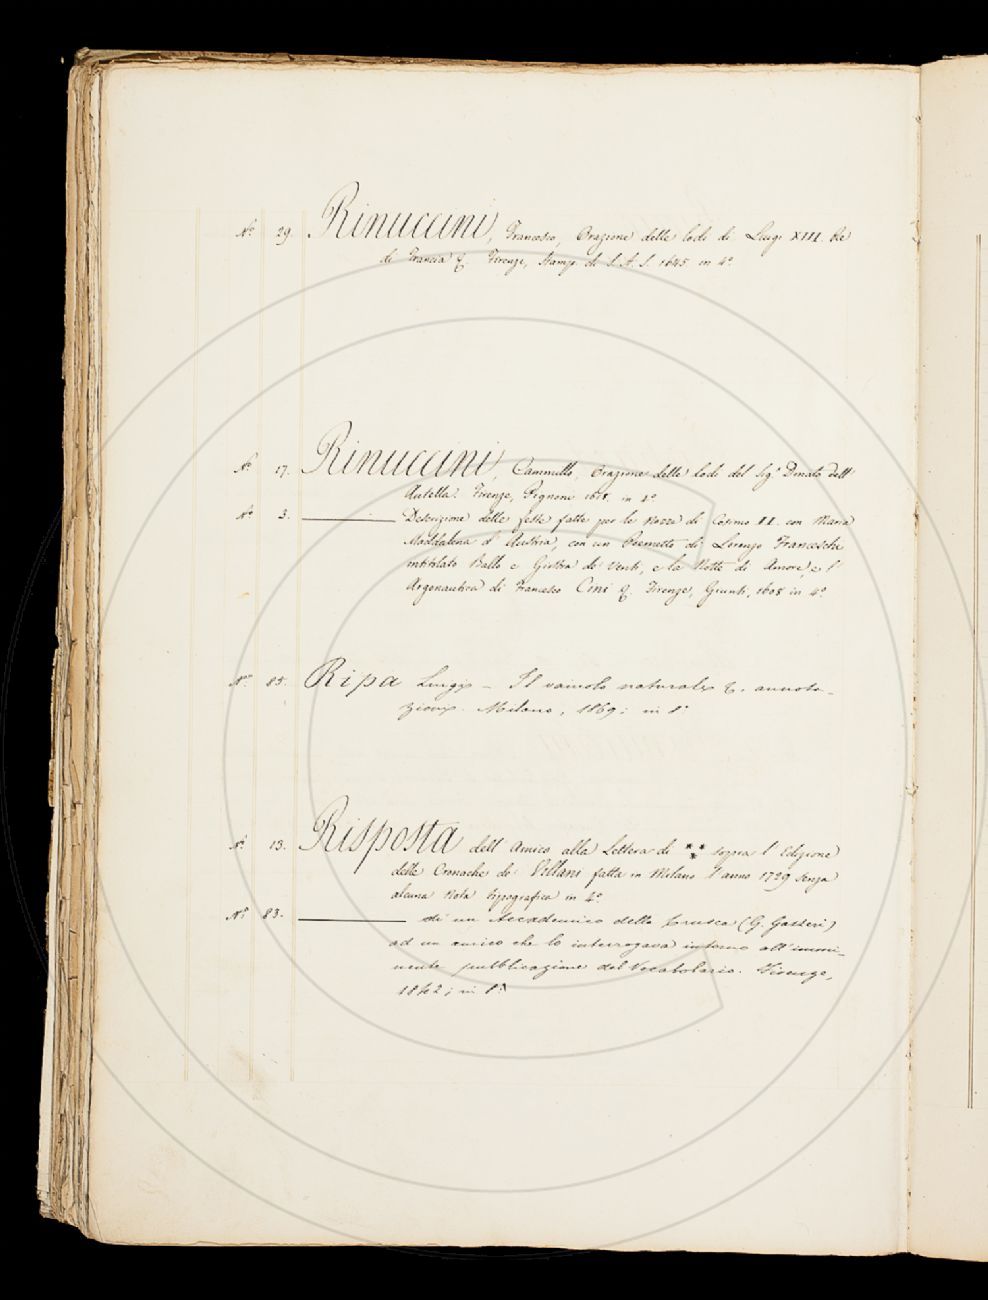 N.° 29. Rinuccini, Francesco, Orazione delle lodi di Luigi XIII. Re
di Francia &. Firenze, Stamp. di S. A. S. 1645 in 4.°
N.° 17. Rinuccini, Cammillo, Orazione delle lodi del Sig.r Donato dell'
Antella. Firenze, Pignoni 1618. in 4.°
N.° 3. ——— Descrizione delle feste fatte per le Nozze di Cosimo II. con Maria
Maddalena d'Austria, con un Poemetto di Lorenzo Franceschi
intitolato Ballo e Giostra de' Venti, e la Notte di Amore, e l'
Argonautica di Francesco Cini &. Firenze, Giunti, 1608 in 4.°
N.° 85. Ripa Luigi – Il vaiuolo naturale &. annota-
zioni. Milano, 1869; in 8.°
N.° 13. Risposta dell'Amico alla Lettera di *** sopra l'Edizione
delle Cronache di Villani fatta in Milano l'anno 1729 senza
alcuna Nota tipografica in 4.°
N.° 83. ——— di un Accademico della Crusca (G. Gazzeri)
ad un amico che lo interrogava intorno all'immi-
nente pubblicazione del Vocabolario. Firenze,
1842; in 8.°